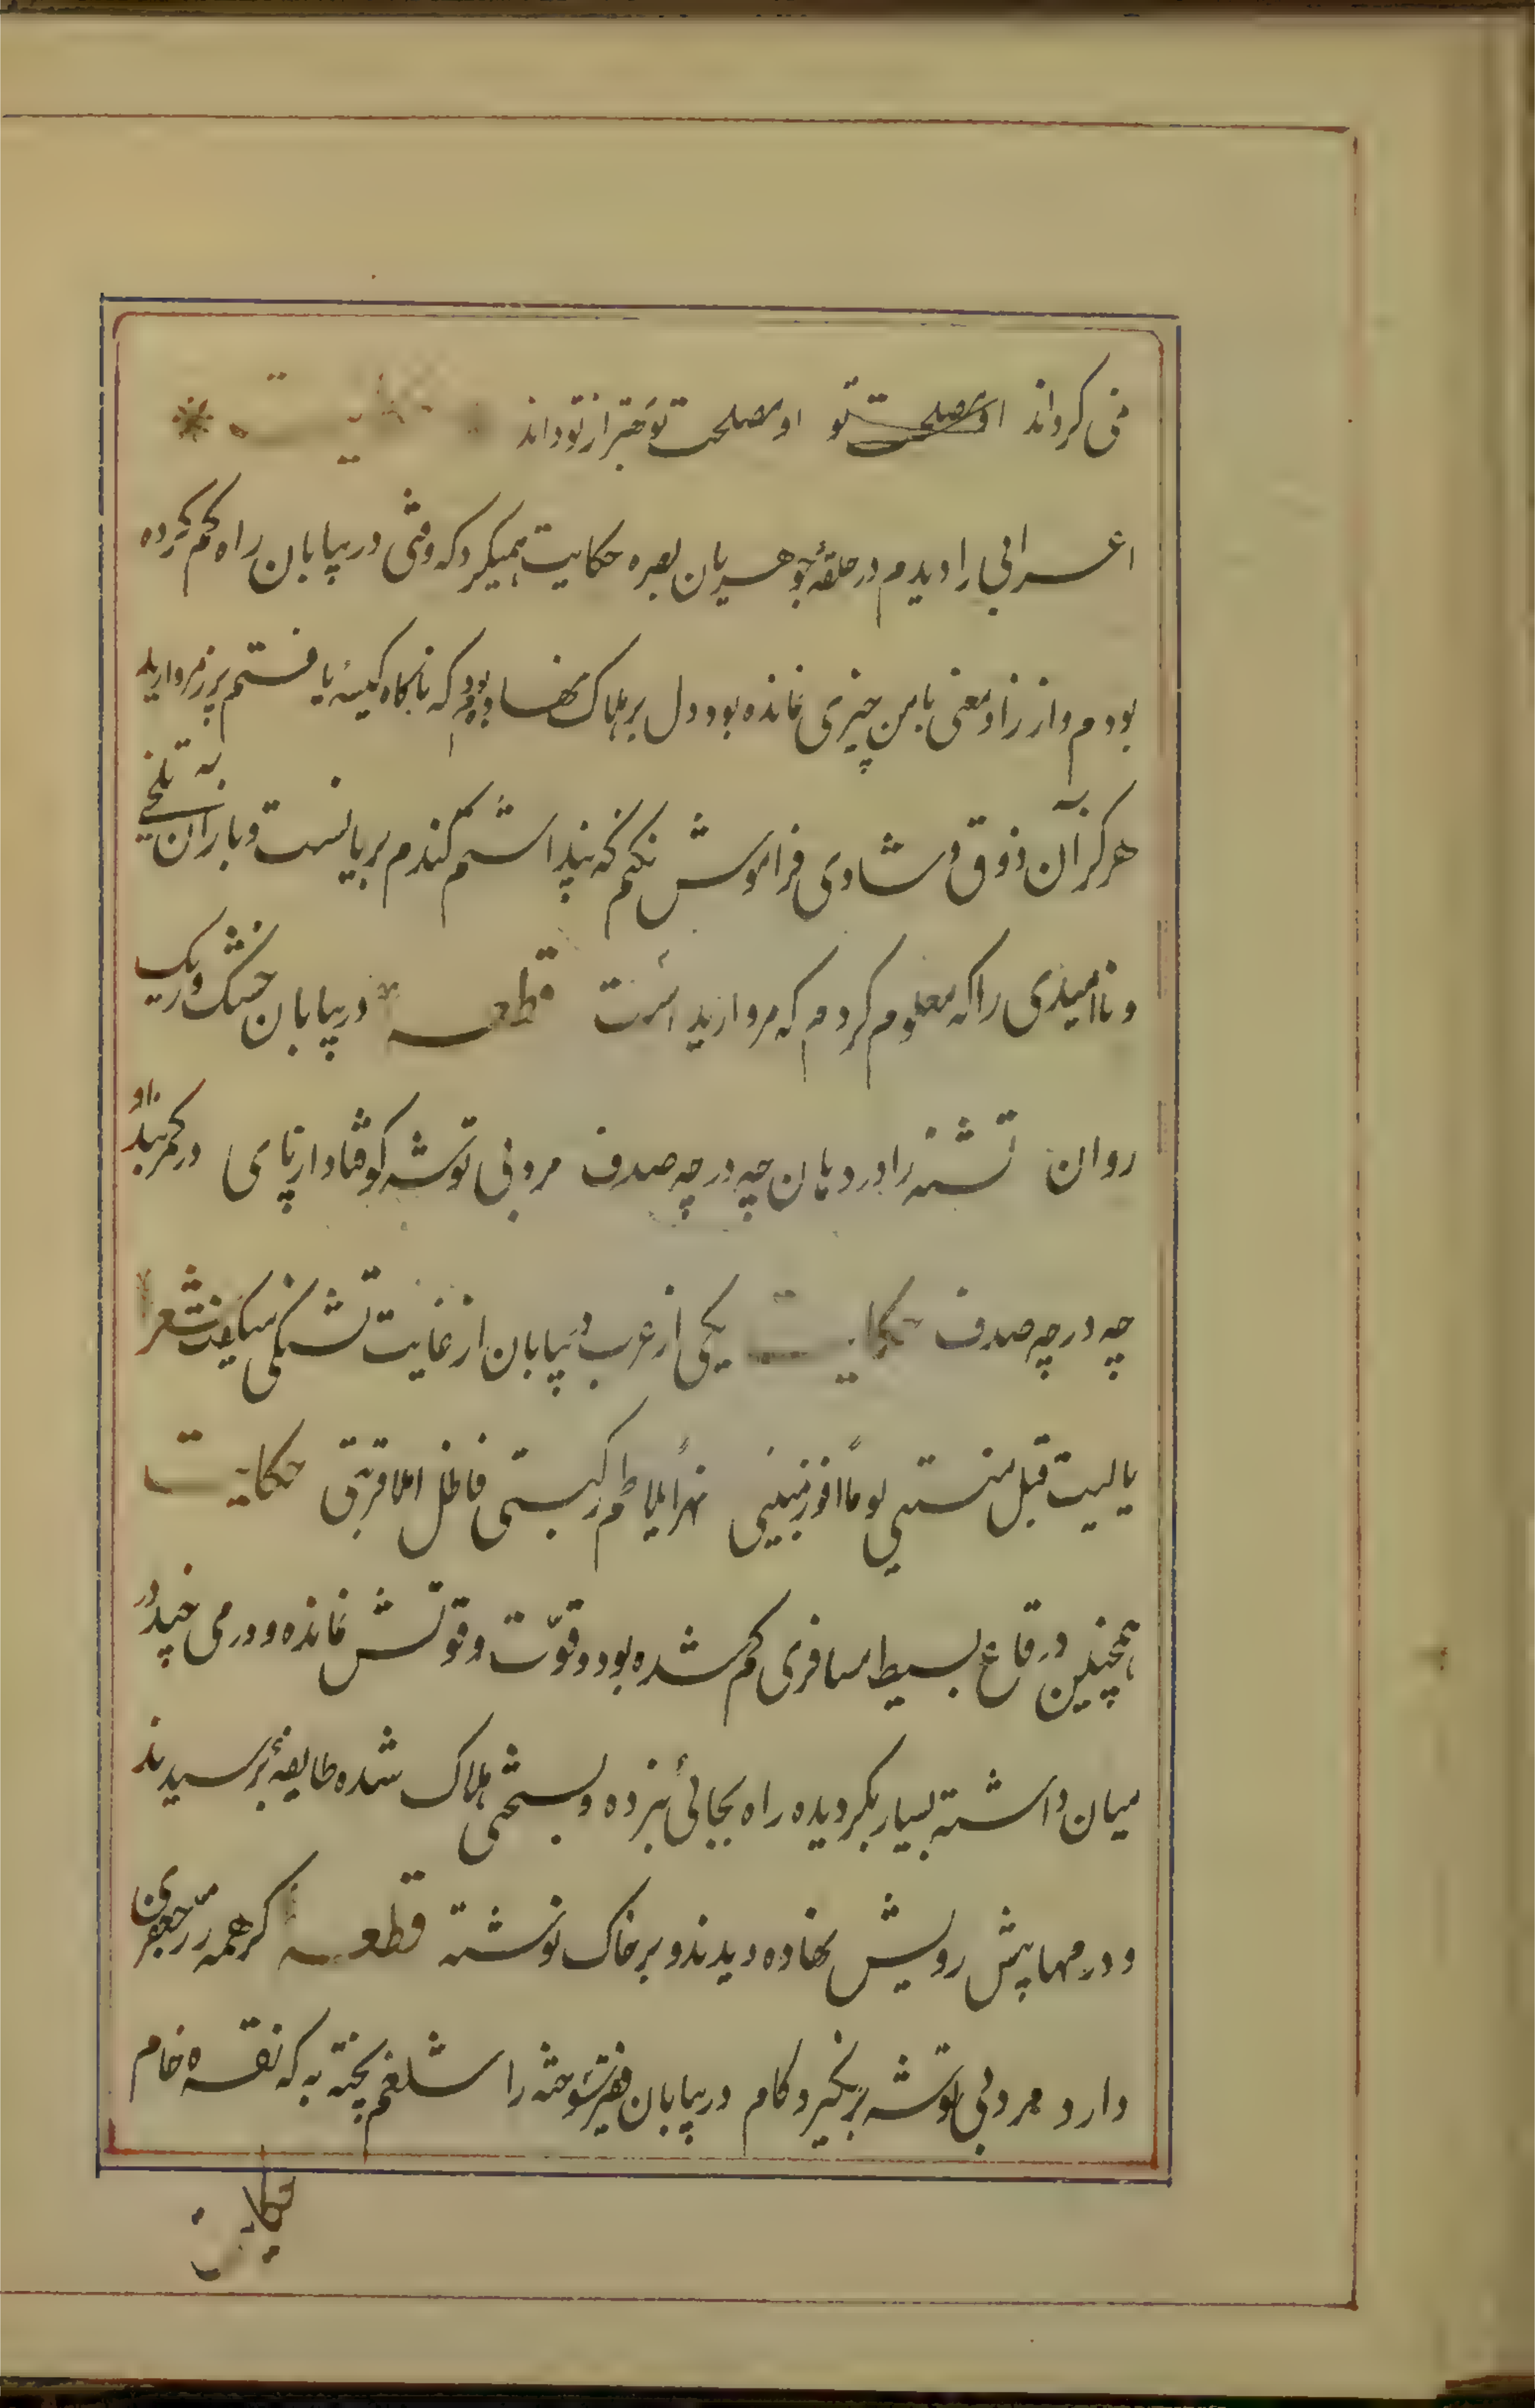 نمی گرداند او مصلحت تو او مصلحت تو بهتر از تو داند حکایت
اعرابی را دیدم در حلقهٔ جوهریان بصره حکایت همیکرد که وقتی در بیابان راه گم کرده
بودم و از زاد معنی با من چیزی نمانده بود و دل بر هلاک نهاده بودم که ناگاه کیسهٔ یافتم پر از مروارید
هرگز آن ذوق و شادی فراموش نکنم که پنداشتم گندم بریانست و باز آن تلخی
و ناامیدی را که معلوم کردم که مروارید است قطعه در بیابان خشک و ریک
روان تشنه را در دهان چه در چه صدف مرد بی توشه کو فتاد از پای در کمربند او
چه در چه صدف حکایت یکی از عرب در بیابان از غایت تشنگی میگفت شعر
یا لیت قبل منیتی یوماً افوز بمنیتی نهراً یلاطم رکبتی فاظل املا قربتی حکایت
همچنین در قاع بسیط مسافری گم شده بود و قوّت و قوتش نمانده و درمی چند در
میان داشته بسیار بگردیده راه بجائی نبرده و بسختی هلاک شده طایفهٔ برسیدند
و درمها پیش رویش نهاده دیدند و بر خاک نوشته قطعه گر همه زر جعفری
دارد مرد بی توشه بر نگیرد کام در بیابان فقیر سوخته را شلغم پخته به که نقره خام
حکایت